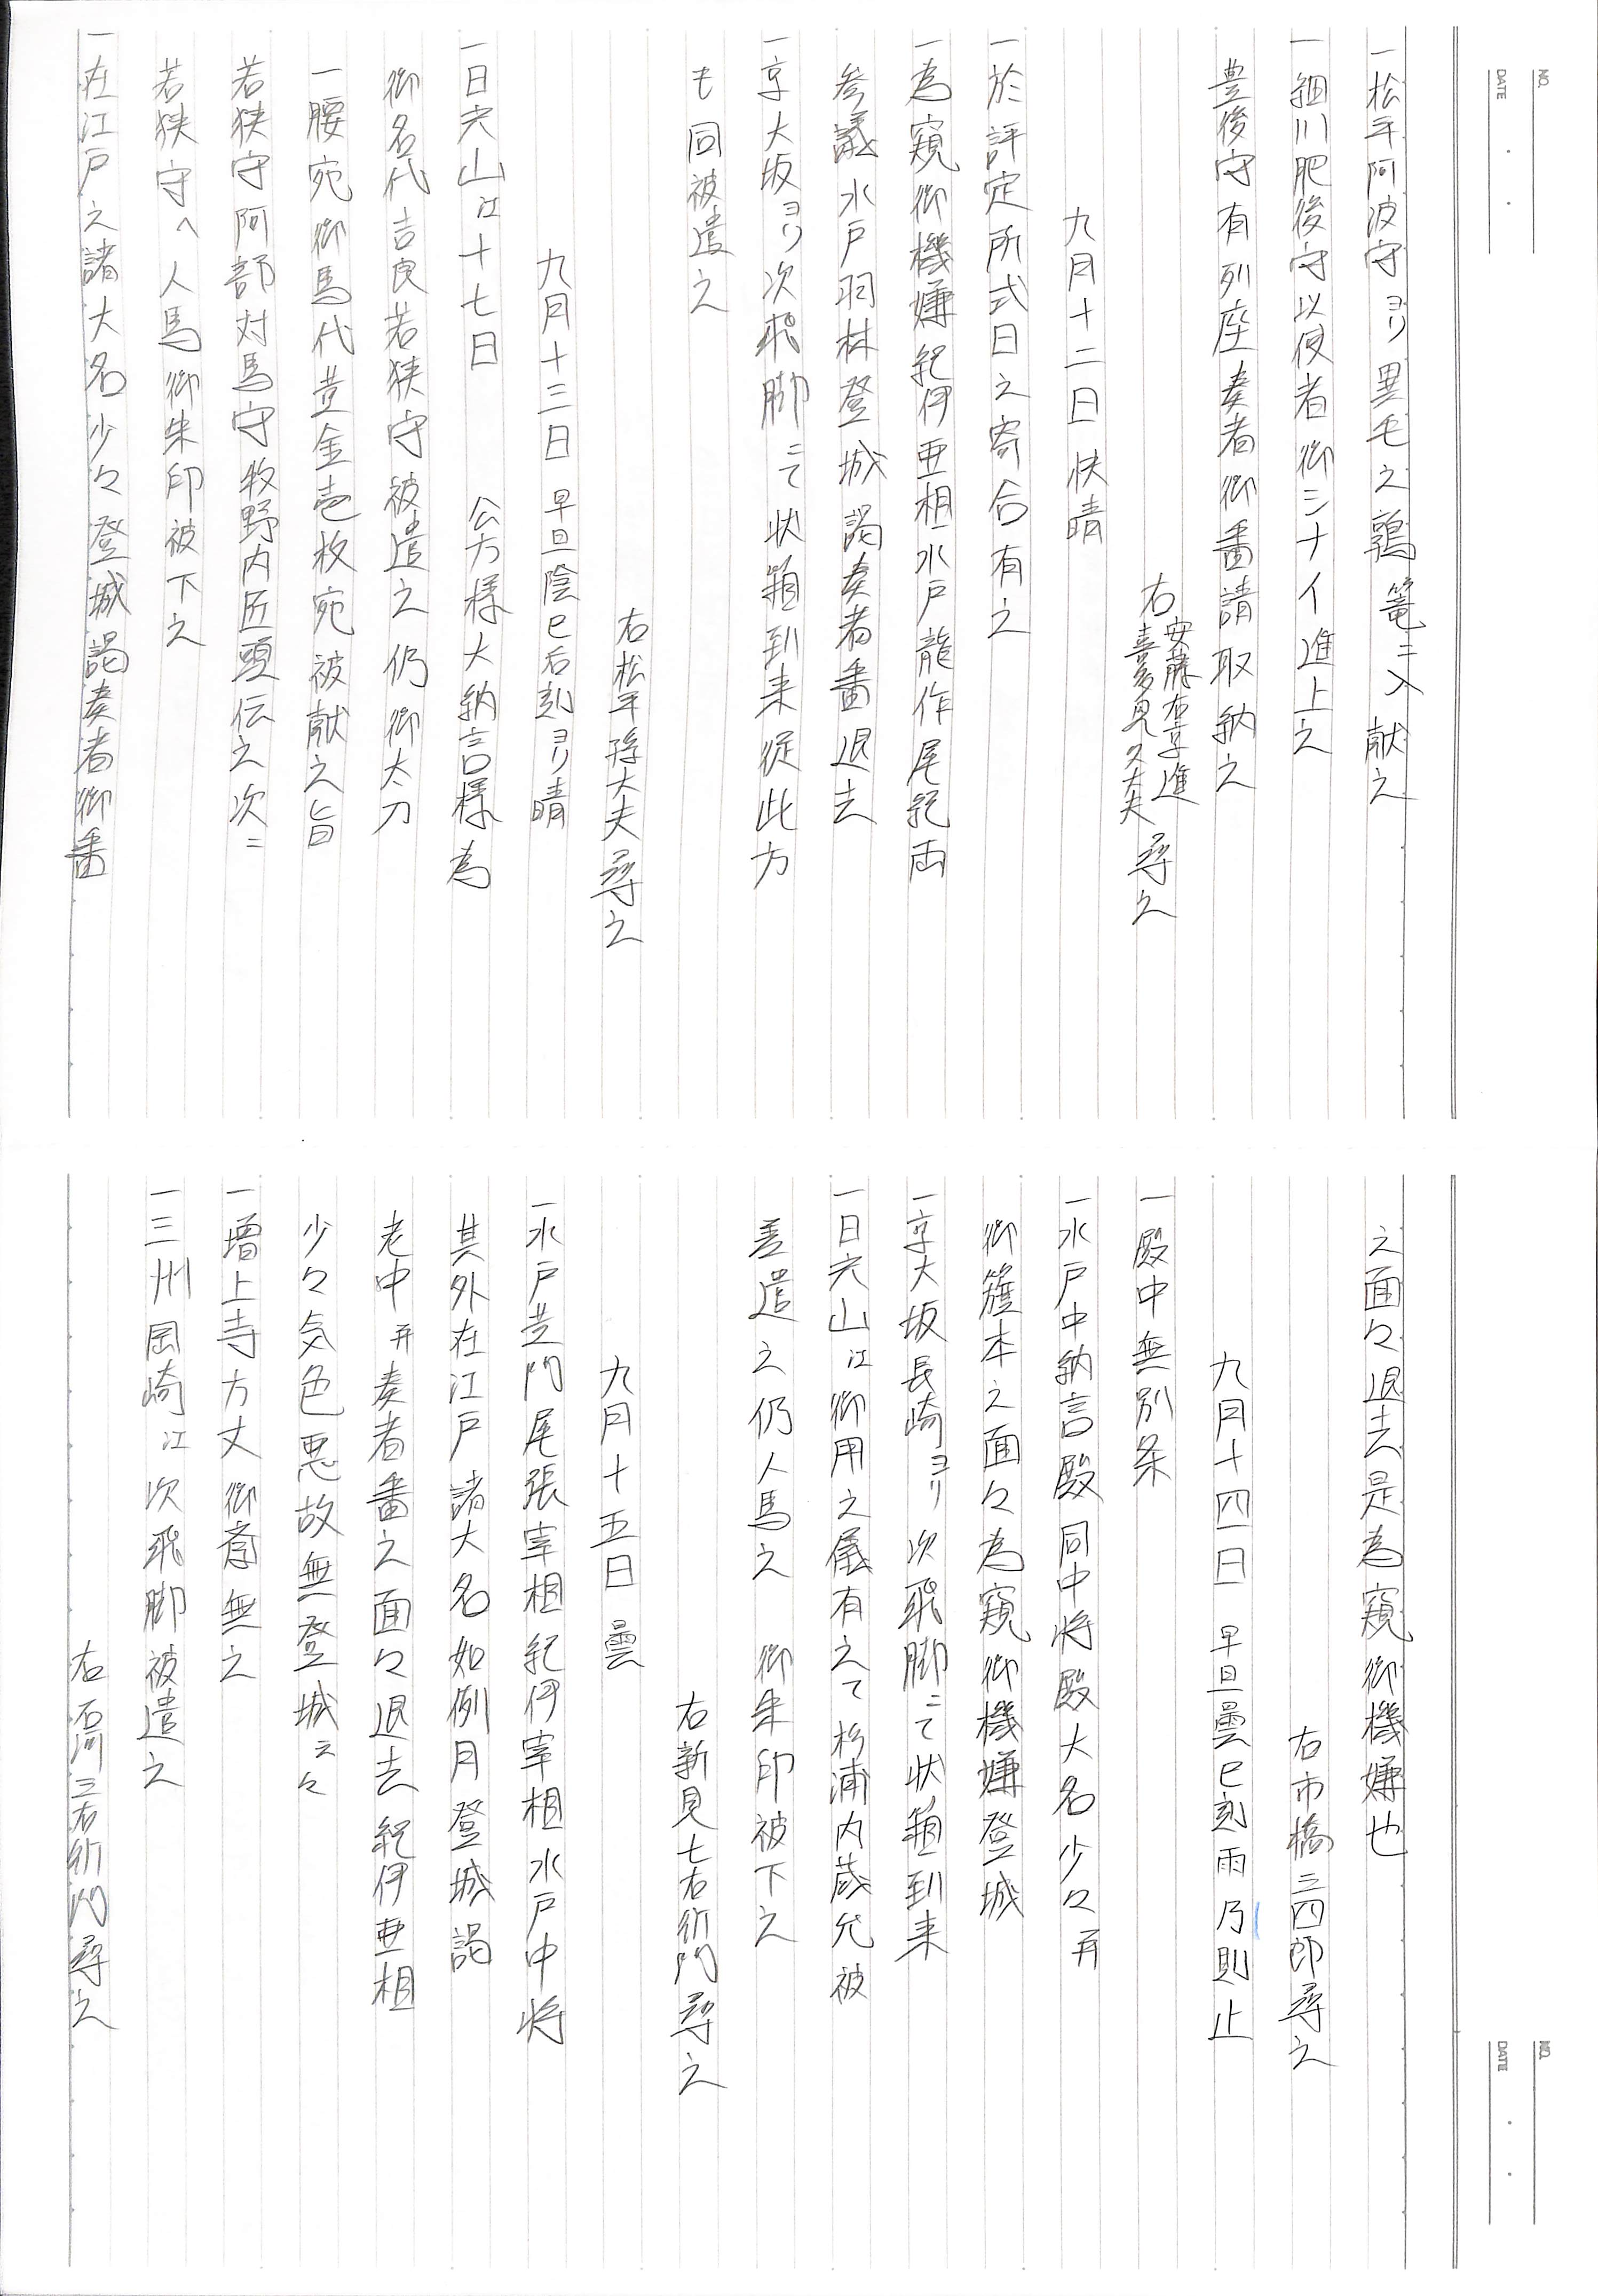 一松平阿波守ヨリ異毛之鶉篭ニ入献之
一細川肥後守以使者御シナイ進上之
豊後守有列座奏者御番請取納之
右安藤右京進
喜多見久太夫尋之
九月十二日 快晴
一於評定所式日之寄合有之
一為窺御機嫌紀伊亜相水戸龍作尾紀両
参議水戸羽林登城謁奏者番退去
一京大坂ヨリ次飛脚ニて状箱到来従此方
も同被遣之
右松平孫大夫尋之
九月十三日 早旦陰巳后刻ヨリ晴
一日光山江十七日 公方様大納言様為
御名代吉良若狭守被遣之仍御太刀
一腰宛御馬代黄金壱枚宛被献之旨
若狭守阿部対馬守牧野内匠頭伝之次ニ
若狭守へ人馬御朱印被下之
一在江戸之諸大名少々登城謁奏者御番
NO.
DATE ・ ・
之面々退去是為窺御機嫌也
右市橋三四郎尋之
九月十四日 早旦曇巳刻雨乃則止
一殿中無別条
一水戸中納言殿同中将殿大名少々并
御籏本之面々為窺御機嫌登城
一京大坂長崎ヨリ次飛脚ニて状箱到来
一日光山江御用之儀有之て杉浦内蔵允被
差遣之仍人馬之 御朱印被下之
右新見七右衛門尋之
九月十五日 曇
一水戸黄門尾張宰相紀伊宰相水戸中将
其外在江戸諸大名如例月登城謁
老中并奏者番之面々退去紀伊亜相
少々気色悪故無登城云々
一増上寺方丈御斎無之
一三州岡崎江次飛脚被遣之
右石河三右衛門尋之
NO.
DATE ・ ・